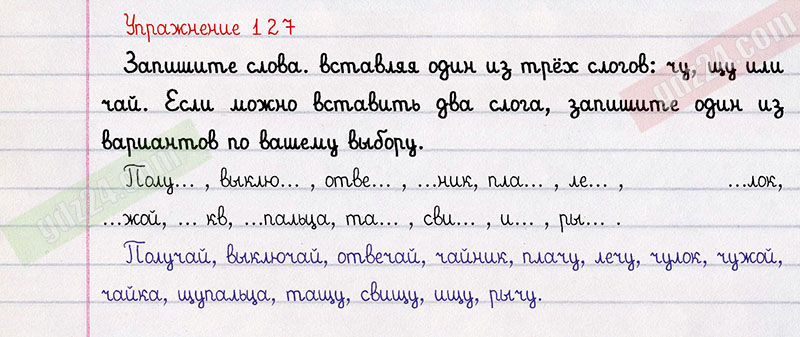 Упражнение 127
Запишите слова. вставляя один из трёх слогов: чу, щу или
чай. Если можно вставить два слога, запишите один из
вариантов по вашему выбору.
Полу... , выклю... , отве... , ...ник, пла... , ле... , ...лок,
...жой, ... кв, ...пальца, та... , сви... , и... , ры... .
Получай, выключай, отвечай, чайник, плачу, лечу, чулок, чужой,
чайка, щупальца, тащу, свищу, ищу, рычу.
gdz24.com
gdz24.com